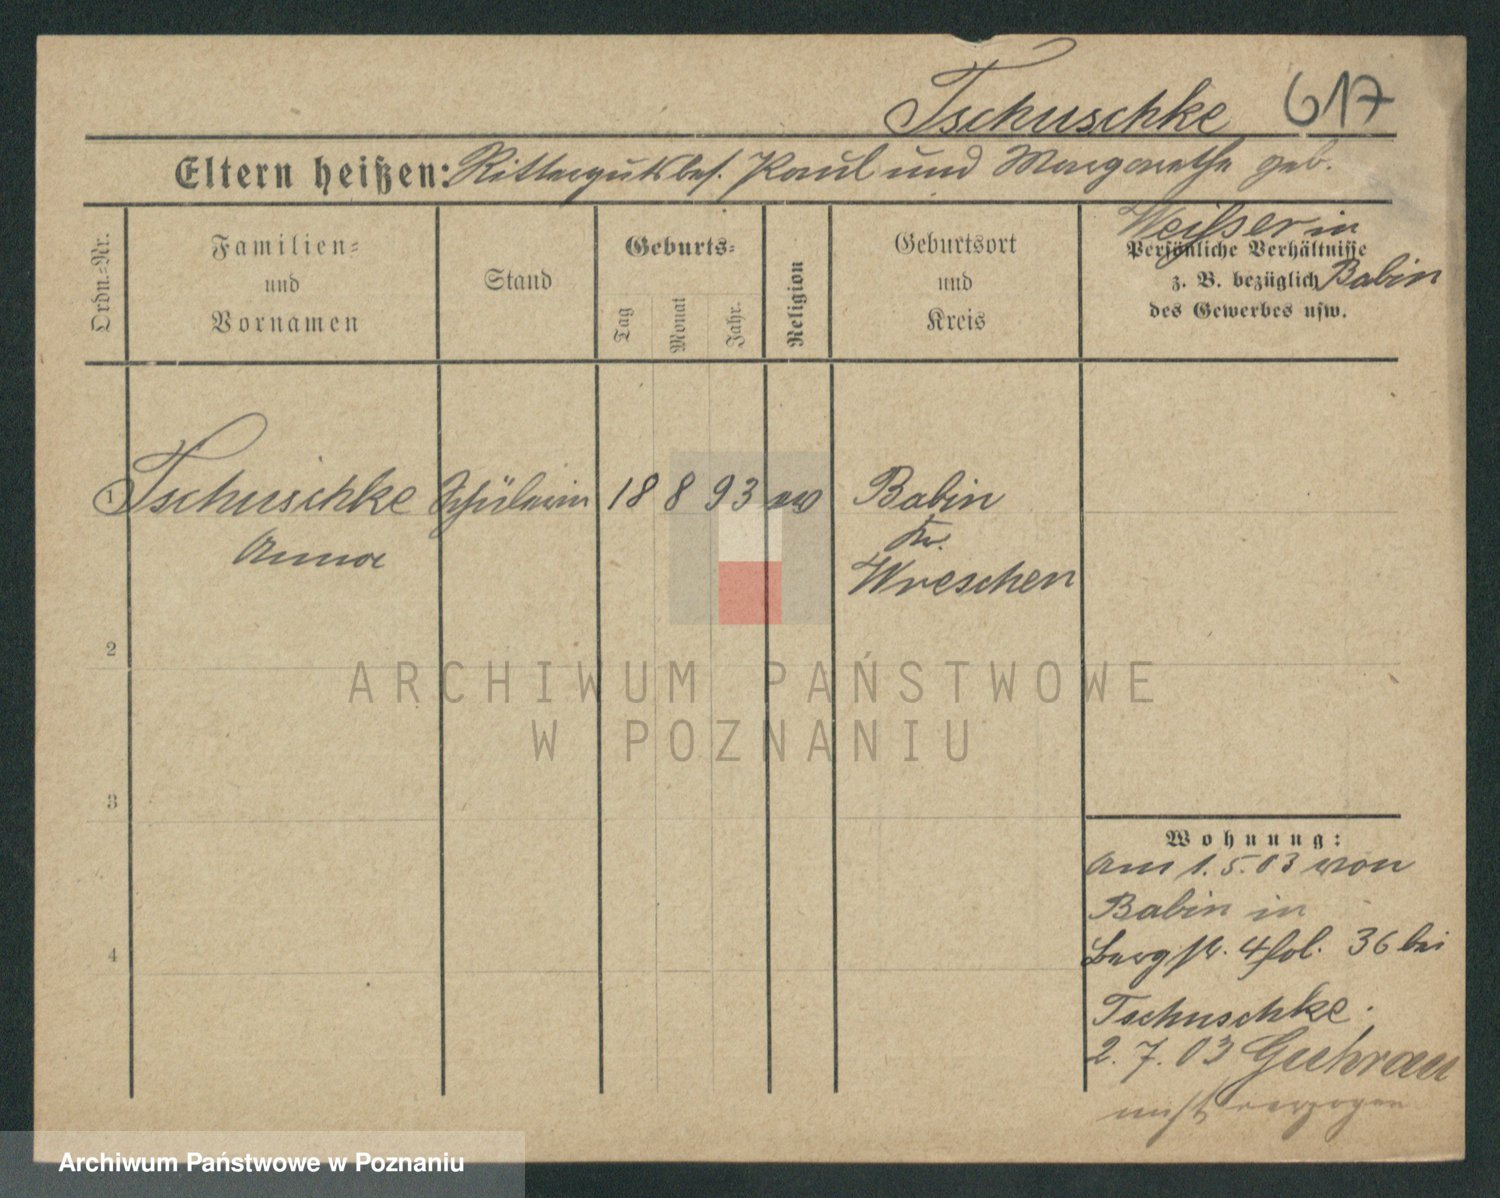 Tschuschke 617
Eltern heißen: Rittergutsbes. Paul und Margarethe geb.
Weisser in
Babin
Ordn.=Nr.
Familien=
und
Vornamen
Stand
Geburts=
Tag
Monat
Jahr.
Religion
Geburtsort
und
Kreis
Persönliche Verhältnisse
z. B. bezüglich
des Gewerbes usw.
1 Tschuschke Schülerin 18 8 93 ev Babin
Anna Kr.
Wreschen
2
3
4
Wohnung:
Am 1. 5. 03 von
Babin in
Bergstr. 4 fol. 36 bei
Tschuschke.
2. 7. 03 Guhrau
verzogen
ARCHIWUM PAŃSTWOWE
W POZNANIU
Archiwum Państwowe w Poznaniu